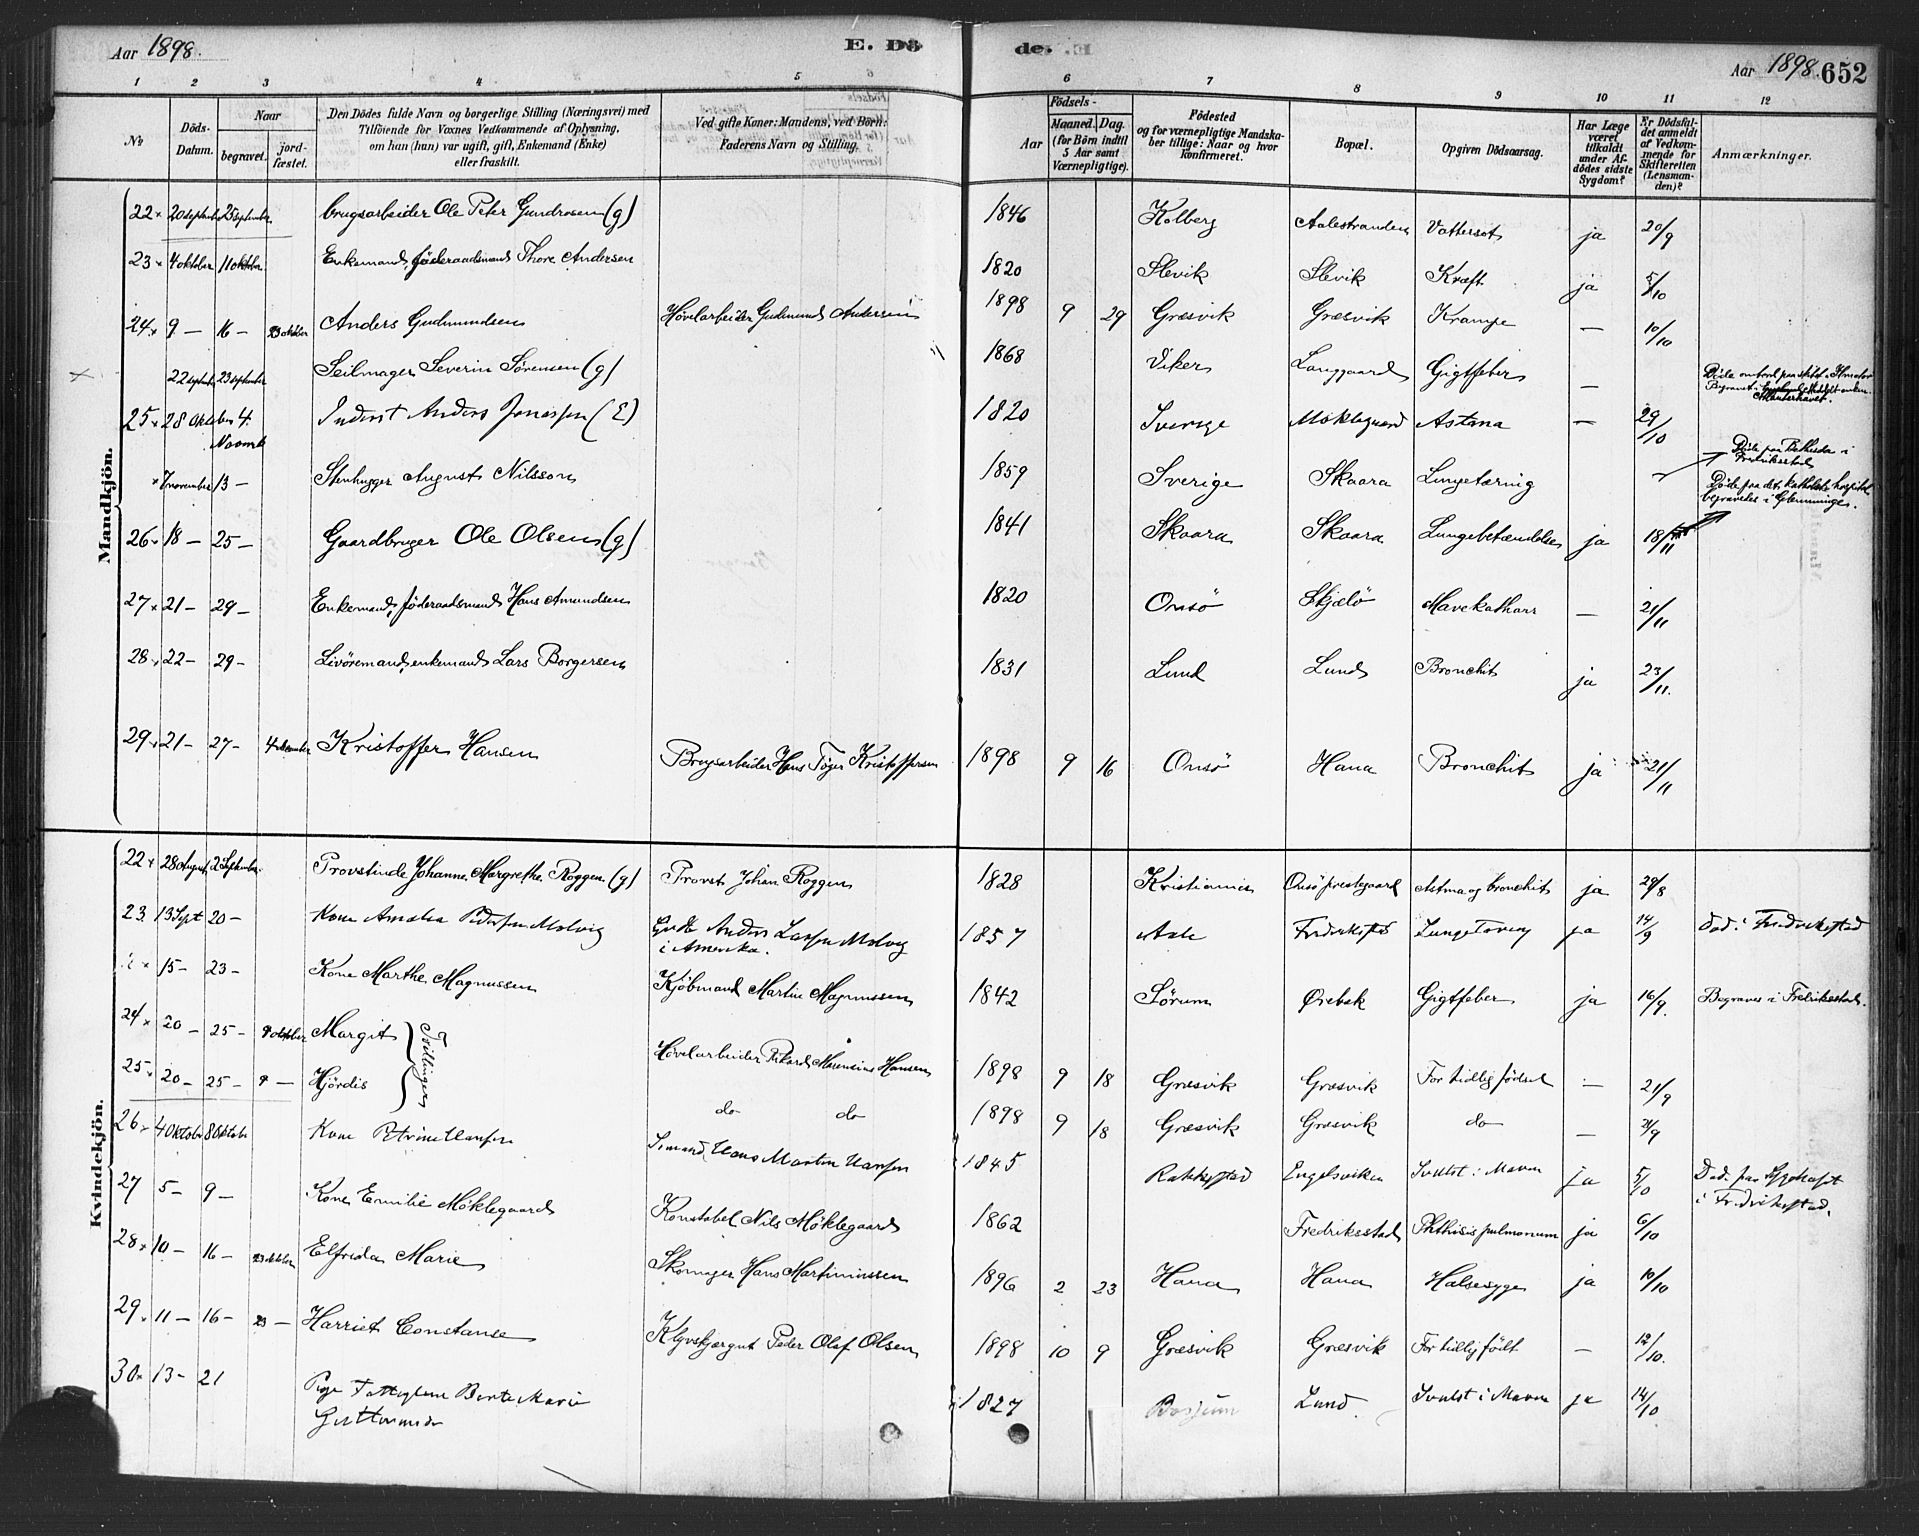 Aar 1898.
E. Dö
de.
Aar 1898. 652
1 2 3 4 5 6 7 8 9 10 11 12
No
Döds-Datum.
Naar
begravet.
jord-fæstet.
Den Dödes fulde Navn og borgerlige Stilling (Næringsvei) med
Tilföiende for Voxnes Vedkommende af Oplysning,
om han (hun) var ugift, gift, Enkemand (Enke)
eller fraskilt.
Ved gifte Koner: Mandens, ved Börn:
Faderens Navn og Stilling.
Födsels-
Aar
Maaned. Dag.
(for Börn indtil
5 Aar samt
Værnepligtige).
Födested
og for værnepligtige Mandska-
ber tillige: Naar og hvor
konfirmeret.
Bopæl.
Opgiven Dödsaarsag.
Har Læge
været
tilkaldt
under Af-
dödes sidste
Sygdom?
Er Dödsfal-
det anmeldt
af Vedkom-
mende for
Skifteretten
(Lensman-
den)?
Anmærkninger.
Mandkjön.
22 20 september 25 september brugsarbeider Ole Peter Gundrosen (g) 1846 Kolberg Aalestranden Vattersot ja 20/9
23 4 oktober 11 oktober Enkemand, föderaadsmand Thore Andersen 1820 Slevik Slevik Kræft ja 5/10
24 9 — 16 — 23 oktober Anders Gudmundsen Høvelarbeider Gudmund Andersen 1898 9 29 Græsvik Græsvik Krampe — 10/10
22 septemb 23 september Seilmager Severin Sørensen (g) 1868 Viker Langgaard Gigtfeber —
Døde ombord paa skibet
Begravet i
Atlanterhavet.
25 28 Oktober 4. Novemb Inderst Anders Jonassen (E) 1820 Sverige Møklegaard Astma — 29/10
7 november 13 — Stenhugger August Nilsson 1859 Sverige Skaara Lungetæring —
Døde paa Bethesda i
Fredriksstad
Døde paa det katholske hospital
begravedes i Glemminge.
26 18 — 25 — Gaardbruger Ole Olsen (g) 1841 Skaara Skaara Lungebetændelse ja 18/11
27 21 — 29 — Enkemand, föderaadsmand Hans Amundsen 1820 Onsö Skjælö Mavekatharr — 21/11
28 22 — 29 — Livöremand, enkemand Lars Borgersen 1831 Lund Lund Bronchit ja 23/11.
29 21 — 27 — 4 december Kristoffer Hansen Brugsarbeider Hans Töger Kristoffersen 1898 9 16 Onsö Hana Bronchit ja 21/11
Kvindekjön.
22 28 August 2 September. Provstinde Johanne Margrethe Roggen (g) Provst Johan Roggen 1828 Kristiania Onsö prestegaard Astma og bronchit ja 29/8
23 13 Sept 20 — Kone Amalia Pedersen Molvig Gifte Anders Larsen Molvig
i Amerika. 1857 Aale Fredrikstad Lungetæring ja 14/9 Död i Fredrikstad
15 — 23 — Kone Marthe Magnussen Kjöbmand Martin Magnussen 1842 Sörum Ørebek Gigtfeber ja 16/9. Begraves i Fredriksstad.
24 20 — 25 — 9 oktober Margit Tvillinger Høvelarbeider Rikard Marensius Hansen 1898 9 18 Græsvik Græsvik For tidlig födsel — 21/9
25 20 — 25 — 9 — Hjördis do do 1898 9 18 Græsvik Græsvik do — 21/9
26 4 Oktober 8 Oktober Kone Petrine Hansen Sømand Hans Martin Hansen 1845 Rakkestad Engelsviken Svulst i Maven ja 5/10
Død paa Sygehuset
i Fredrikstad.
27 5 — 9 — Kone Emilie Møklegaard Konstabel Nils Møklegaard 1862 Fredriksstad Phthisis pulmonum ja 6/10
28 10 — 16 — 23 oktober Elfrida Marie Skomager Hans Martiniussen 1896 2 23 Hana Hana Halsesyge ja 10/10
29 11 — 16 — 23 — Harriet Constanse Peder Olaf Olsen 1898 10 9 Græsvik Græsvik For tidlig født — 12/10.
30 13 — 21 Pige Berte Marie
Guttormsdr 1827 Lund Svulst i Maven ja 14/10